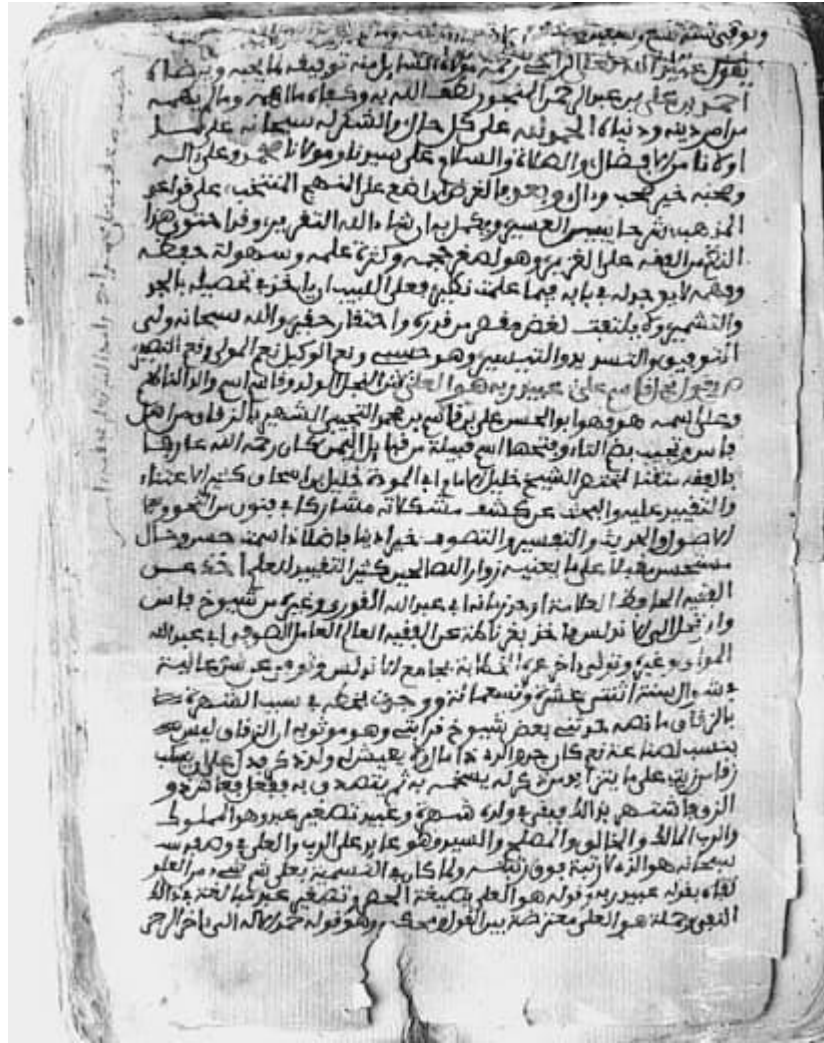 يقول عبيد الله تعلى الراجي رحمة مولاه السايل منه توفيقه لما يحبه ويرضاه
احمد بن علي بن عبد الرحمن المنجور لطف الله به وكفاه ما اهمه وما لم يهمه
من امر دينه ودنياه الحمد لله على كل حال والشكر له سبحانه على ما
اولانا من الافضال والصلاة والسلام على سيدنا ومولانا محمد وعلى اله
وصحبه خير صحب وءال وبعد فالغرض ان اضع على المنهج المنتخب على قواعد
المذهب شرحا ييسر العسير ويكمل به ان شاء الله التقريب وقد احتوى هذا
النظم من الفقه على الغزير وهو لصغر حجمه وكثرة علمه وسهولة حفظه
وفهمه لا يوجد له في بابه فيما علمت نظير فعلى اللبيب ان ياخذ في تحصيله بالجد
والتشمير ولا يلتفت لغض مغض من قدره واحتقار حقير والله سبحانه ولي
التوفيق والتسديد والتيسير وهو حسبي ونعم الوكيل نعم المولى ونعم النصير
ص يقول نجل قاسم علي عبيد ربه هو العلي ش النجل الولد وقاسم اسم والد الناظم
وعلي اسمه هو وهو ابو الحسن علي بن قاسم بن محمد التجيبي الشهير بالزقاق من اهل
فاس وتجيب بضم التاء وفتحها اسم قبيلة من قبايل اليمن كان رحمه الله عارفا
بالفقه متقنا لمختصر الشيخ خليل الامام ابي المودة خليل بن اسحاق كثير الاعتناء
والتقييد عليه والبحث عن كشف مشكلاته مشاركا في فنون من النحو و
الاصول والحديث والتفسير والتصوف خيرا دينا فاضلا ذا سمت حسن وحال
مستحسن مقبلا على ما يعنيه زوارا للصالحين كثير التقييد للعلم اخذ عن
الفقيه الحافظ العلامة اوحد زمانه ابي عبد الله القوري وغيره من شيوخ فاس
وارتحل الى الاندلس فاخذ بغرناطة عن الفقيه العالم العامل الصوفي ابي عبد الله
المواق وغيره وتولى ءاخر عمره الخطابة بجامع الاندلس وتوفي عن سن عالية
في شوال سنة اثنتي عشرة وتسعمائة ووجدت بخطه في سبب الشهرة
بالزقاق ما نصه حدثني بعض شيوخ قرابتي وهو موثوق به ان الزقاق ليس
بنسب لصناعة نعم كان جد والده ذا مال ولا يعيش له ولد ذكر فدل على ان يطلب
الزوجة اشتهر بذلك وبقي في ولده شهرة وعبيد تصغير عبد وهو المملوك
والرب المالك والخالق والمصلح والسيد وهو عايد على الرب والعلي في وصفه
سبحانه هو الذي لا رتبة فوق رتبته ولما كان في التسمية بعلي شيء من العلو
نفاه بقوله عبيد ربه وقوله هو العلي بصيغة الحصر وتصغير عبد مبالغة في ذلك
النفي وجملة هو العلي معترضة بين القول ومحكيه وهو قوله حمدا لاله الى ءاخر الرجز